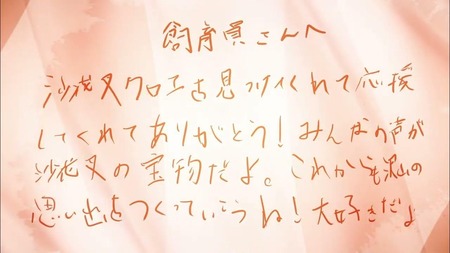 飼育員さんへ
沙花叉クロヱを見つけてくれて応援
してくれてありがとう！みんなの声が
沙花叉の宝物だよ。これからも沢山の
思い出をつくっていこうね！大好きだよ